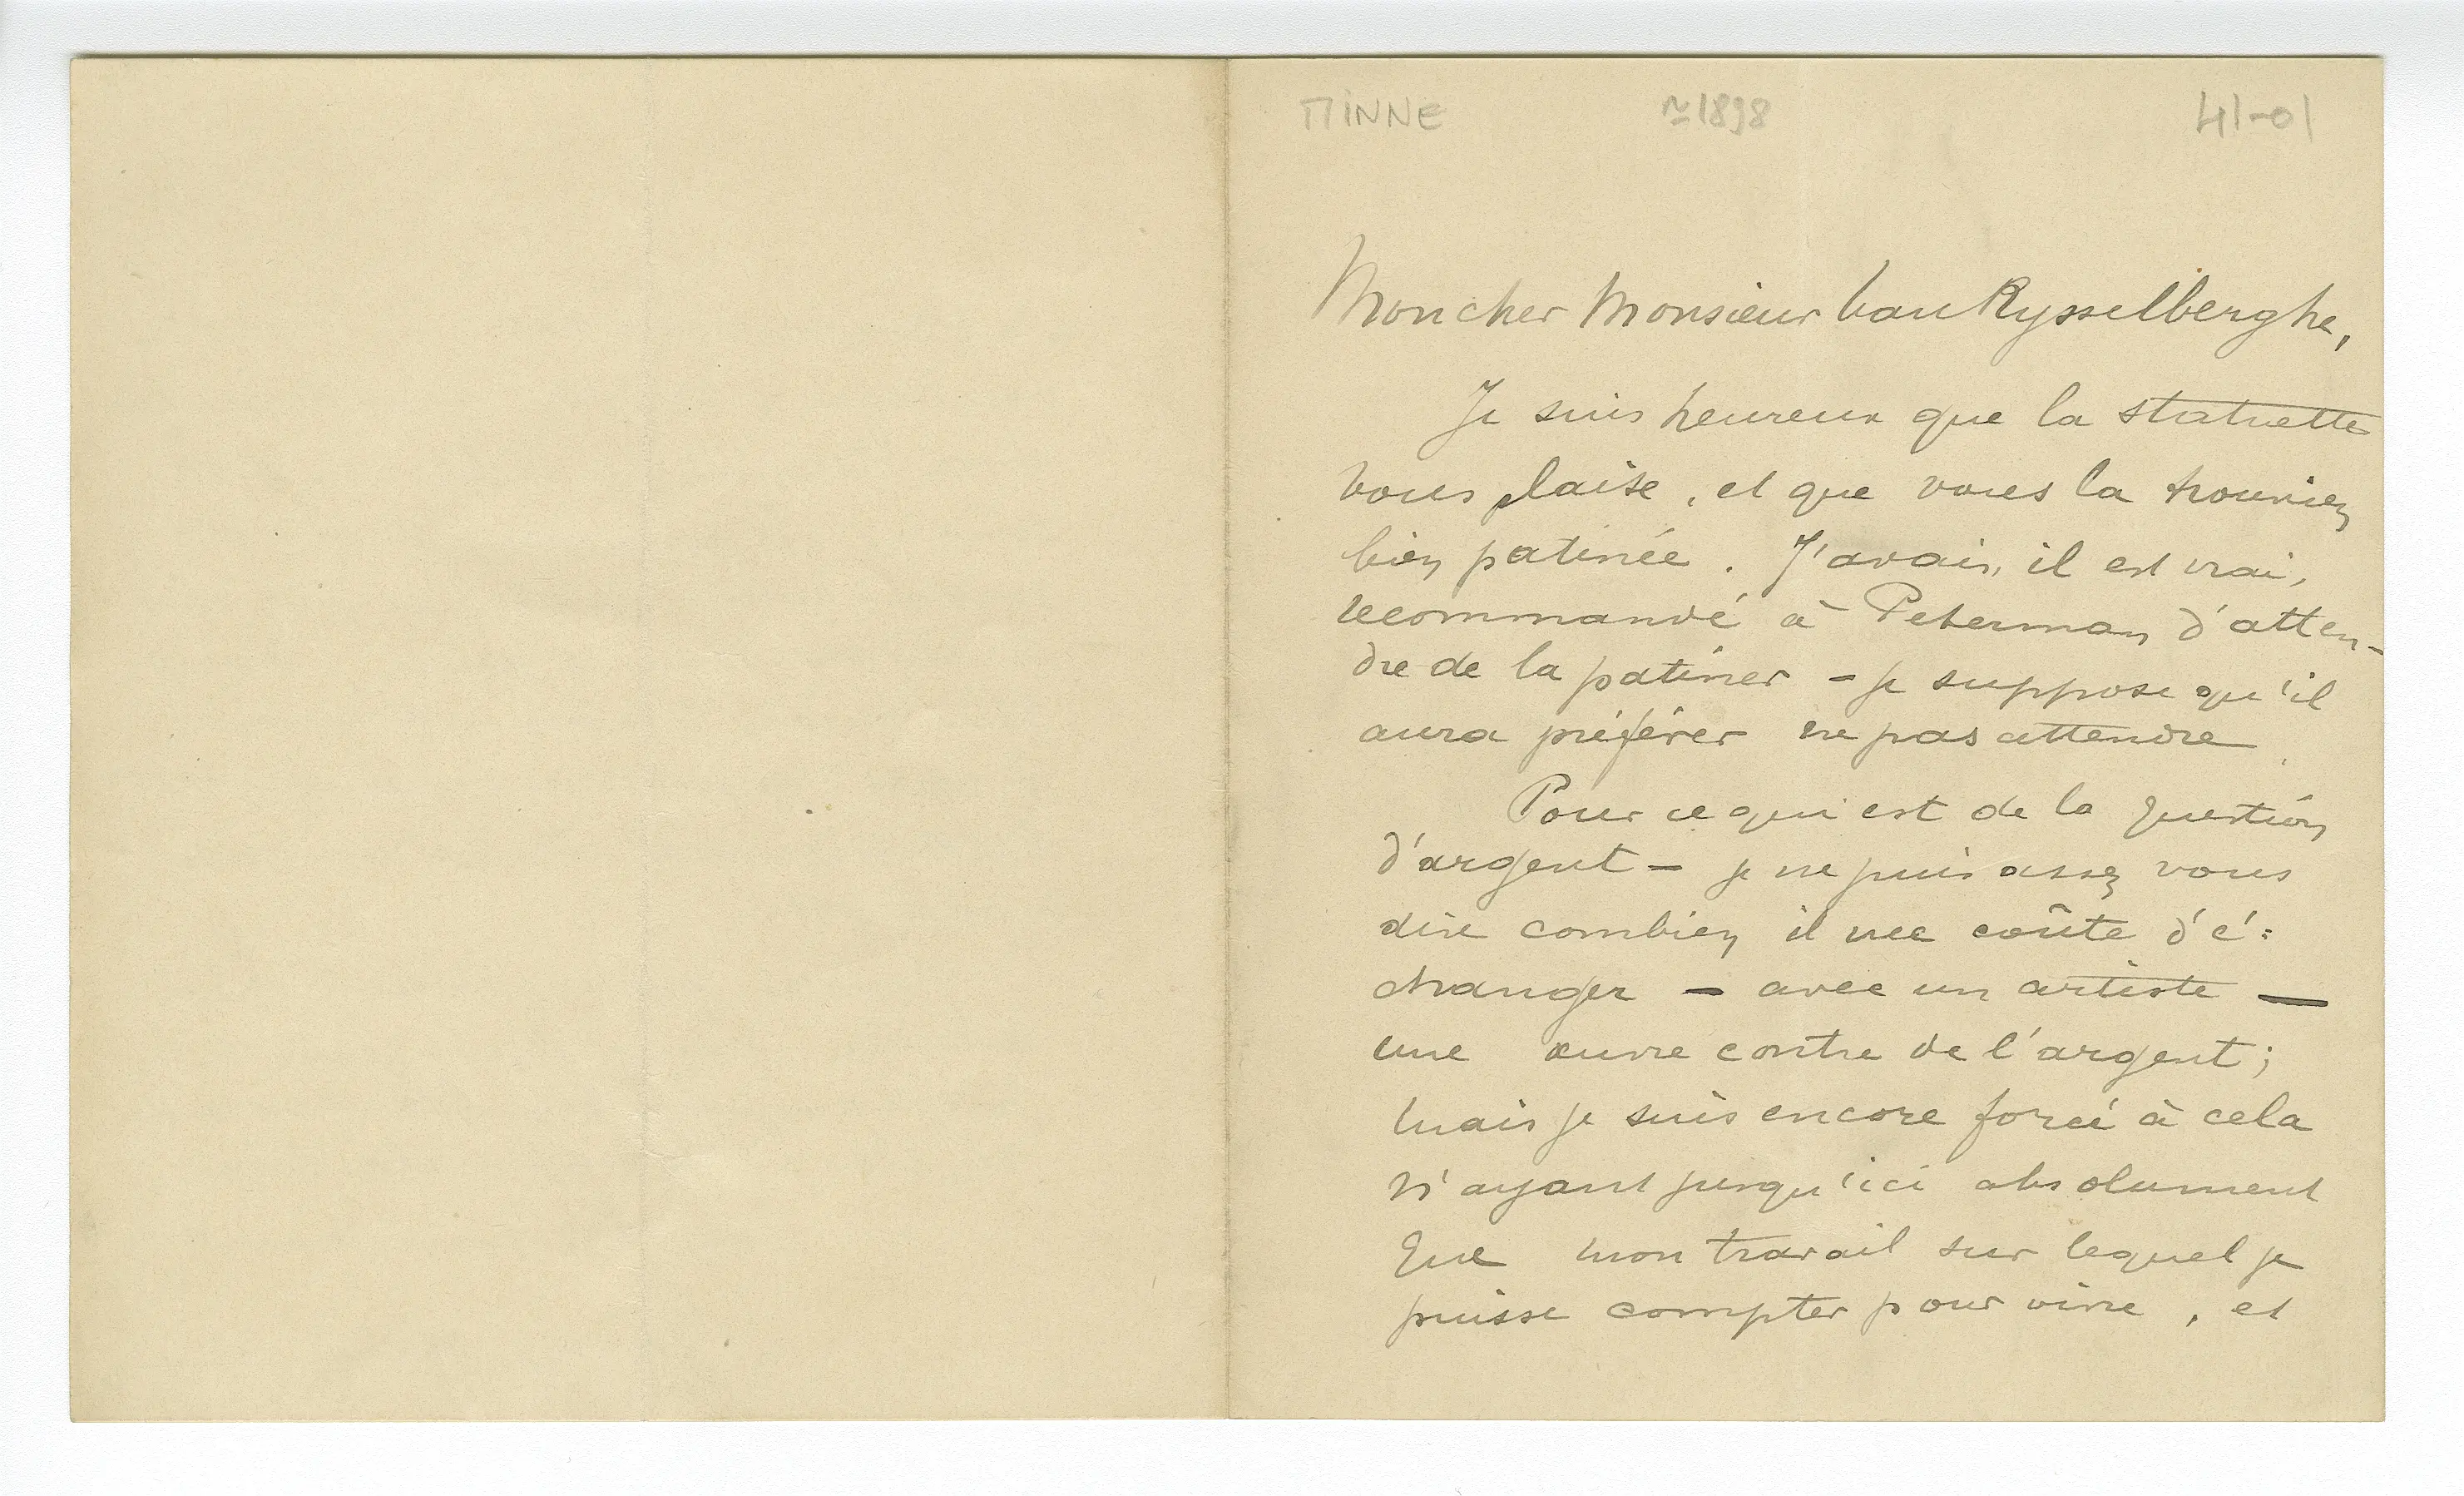 MINNE ≃1898 41-01
Mon cher Monsieur van Rysselberghe,
Je suis heureux que la statuette
vous plaise, et que vous la trouviez
bien patinée. J'avais, il est vrai,
recommandé à Peterman d'atten-
dre de la patiner - je suppose qu'il
aura préférer ne pas attendre.
Pour ce qui est de la question
d'argent - je ne puis assez vous
dire combien il me coûte d'é=
changer - avec un artiste -
une œuvre contre de l'argent;
mais je suis encore forcé à cela
n'ayant jusqu'ici absolument
que mon travail sur lequel je
puisse compter pour vivre, et